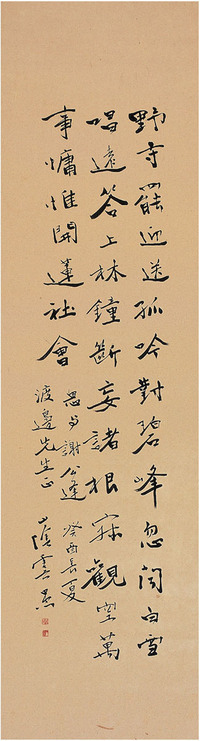 野寺罷迎送孤吟對碧峰忽聞白雪
唱遠答上林鐘斷妄諸根寂觀空萬
事慵惟開蓮社會
忽与謝公逢
癸酉長夏
渡邊先生正